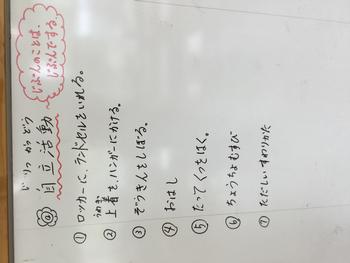 じぶんのことは、
じぶんでする。
じりつかつどう
◎自立活動
①ロッカーに、ランドセルをいれる。
うわぎ
②上着を、ハンガーにかける。
③ぞうきんをしぼる。
④おはし
⑤たってくつをはく。
⑥ちょうちょむすび
⑦ただしいすわりかた